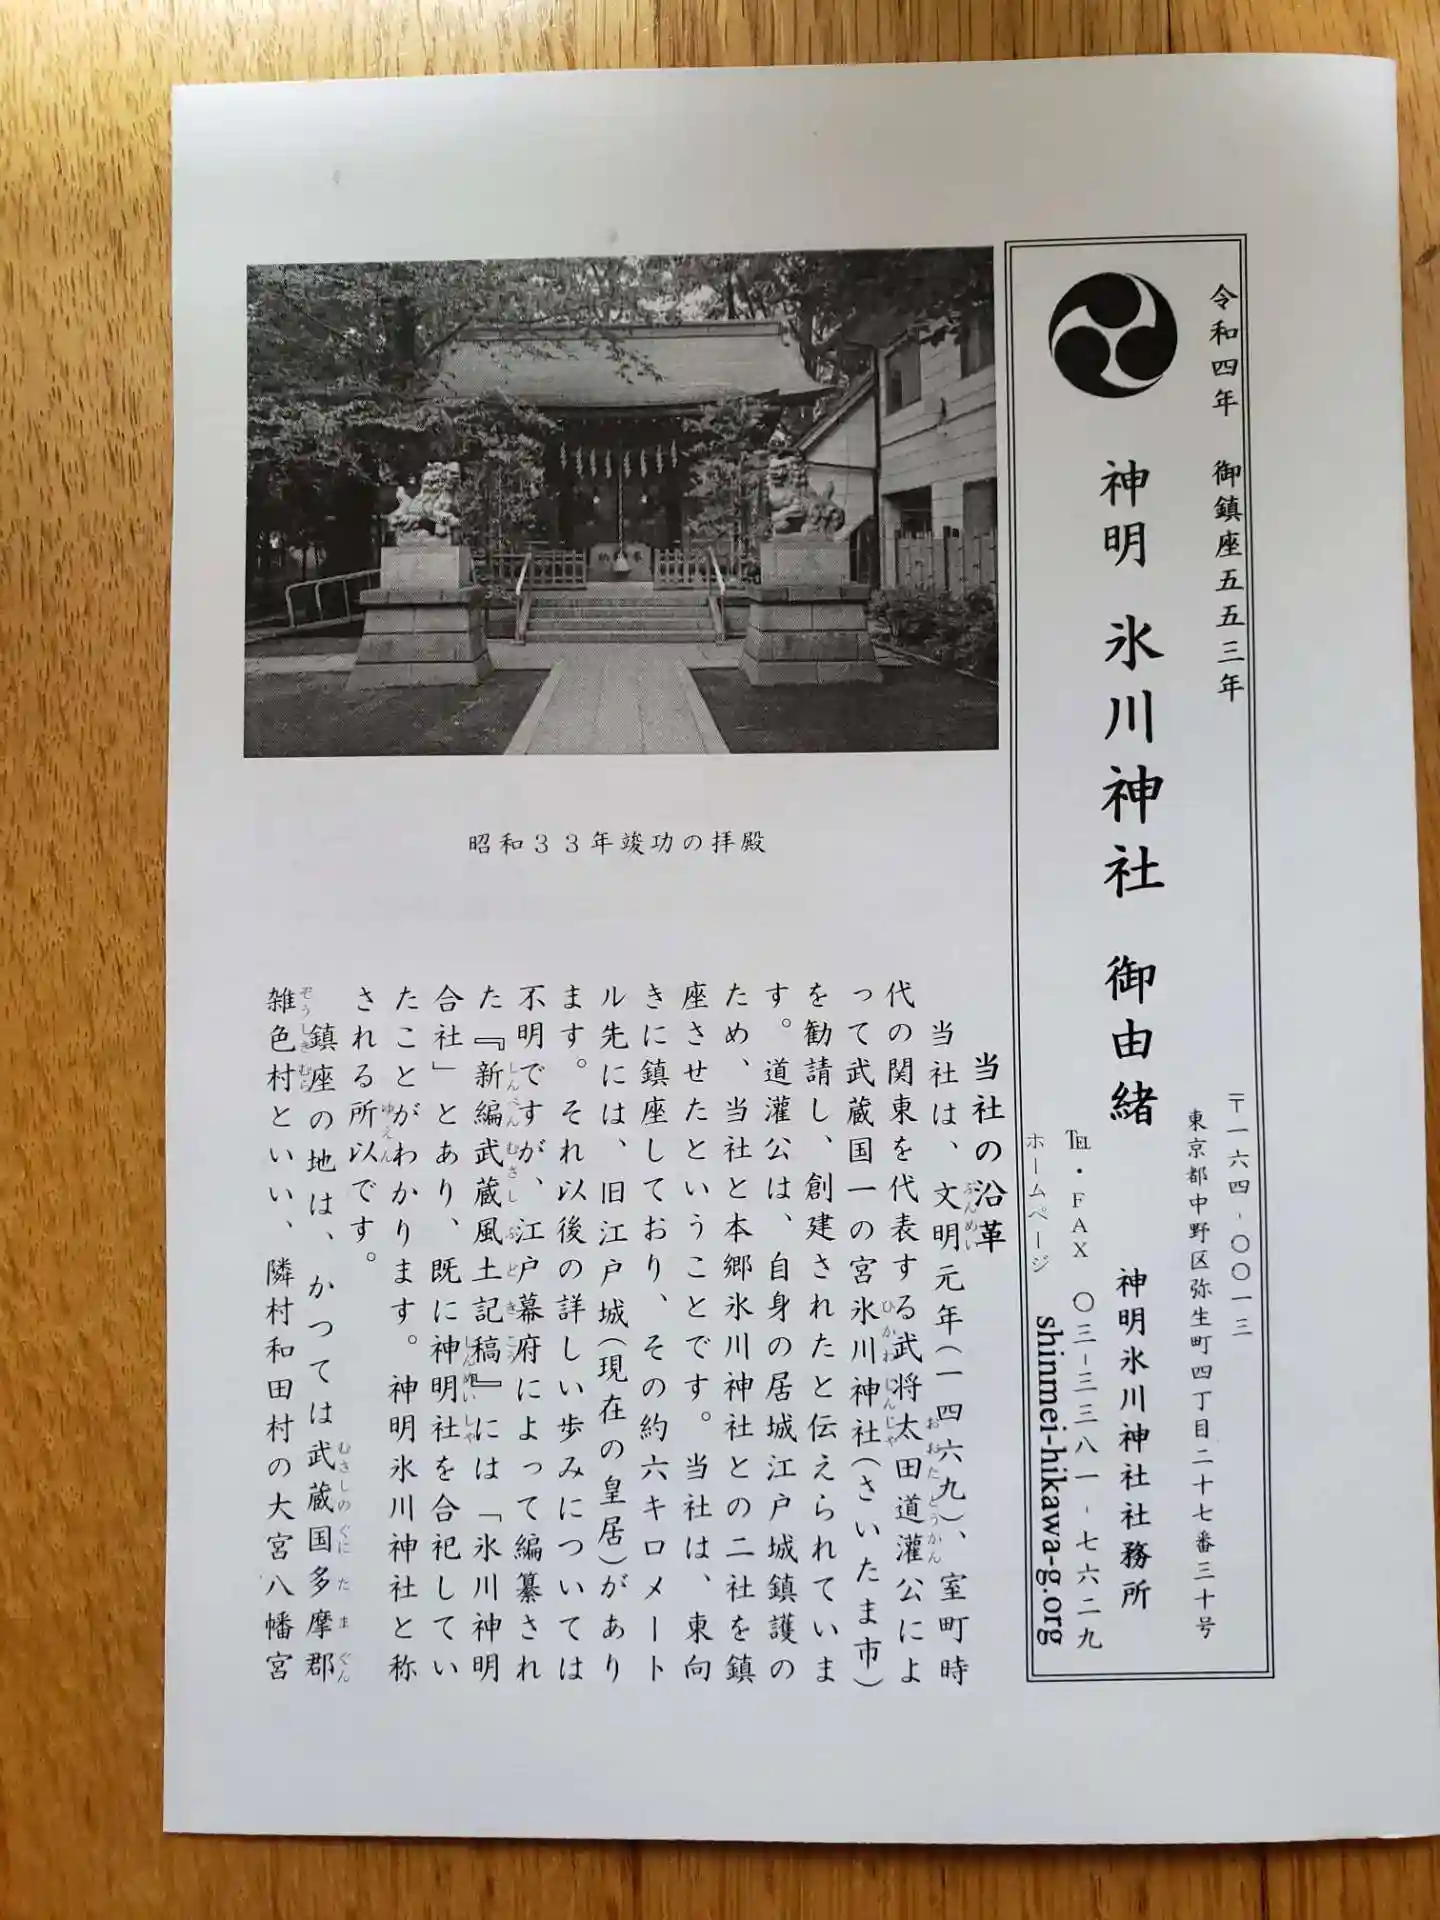 令和四年 御鎮座五五三年
神明 氷川神社 御由緒
〒一六四-〇〇一三
東京都中野区弥生町四丁目二十七番三十号
神明氷川神社社務所
℡・FAX 〇三-三三八一-七六二九
ホームページ shinmei-hikawa-g.org
昭和33年竣功の拝殿
当社の沿革
当社は、文明元年(一四六九)、室町時
代の関東を代表する武将太田道灌公によ
って武蔵国一の宮氷川神社(さいたま市)
を勧請し、創建されたと伝えられていま
す。道灌公は、自身の居城江戸城鎮護の
ため、当社と本郷氷川神社との二社を鎮
座させたということです。当社は、東向
きに鎮座しており、その約六キロメート
ル先には、旧江戸城(現在の皇居)があり
ます。それ以後の詳しい歩みについては
不明ですが、江戸幕府によって編纂され
た『新編武蔵風土記稿』には「氷川神明
合社」とあり、既に神明社を合祀してい
たことがわかります。神明氷川神社と称
される所以です。
鎮座の地は、かつては武蔵国多摩郡
雑色村といい、隣村和田村の大宮八幡宮